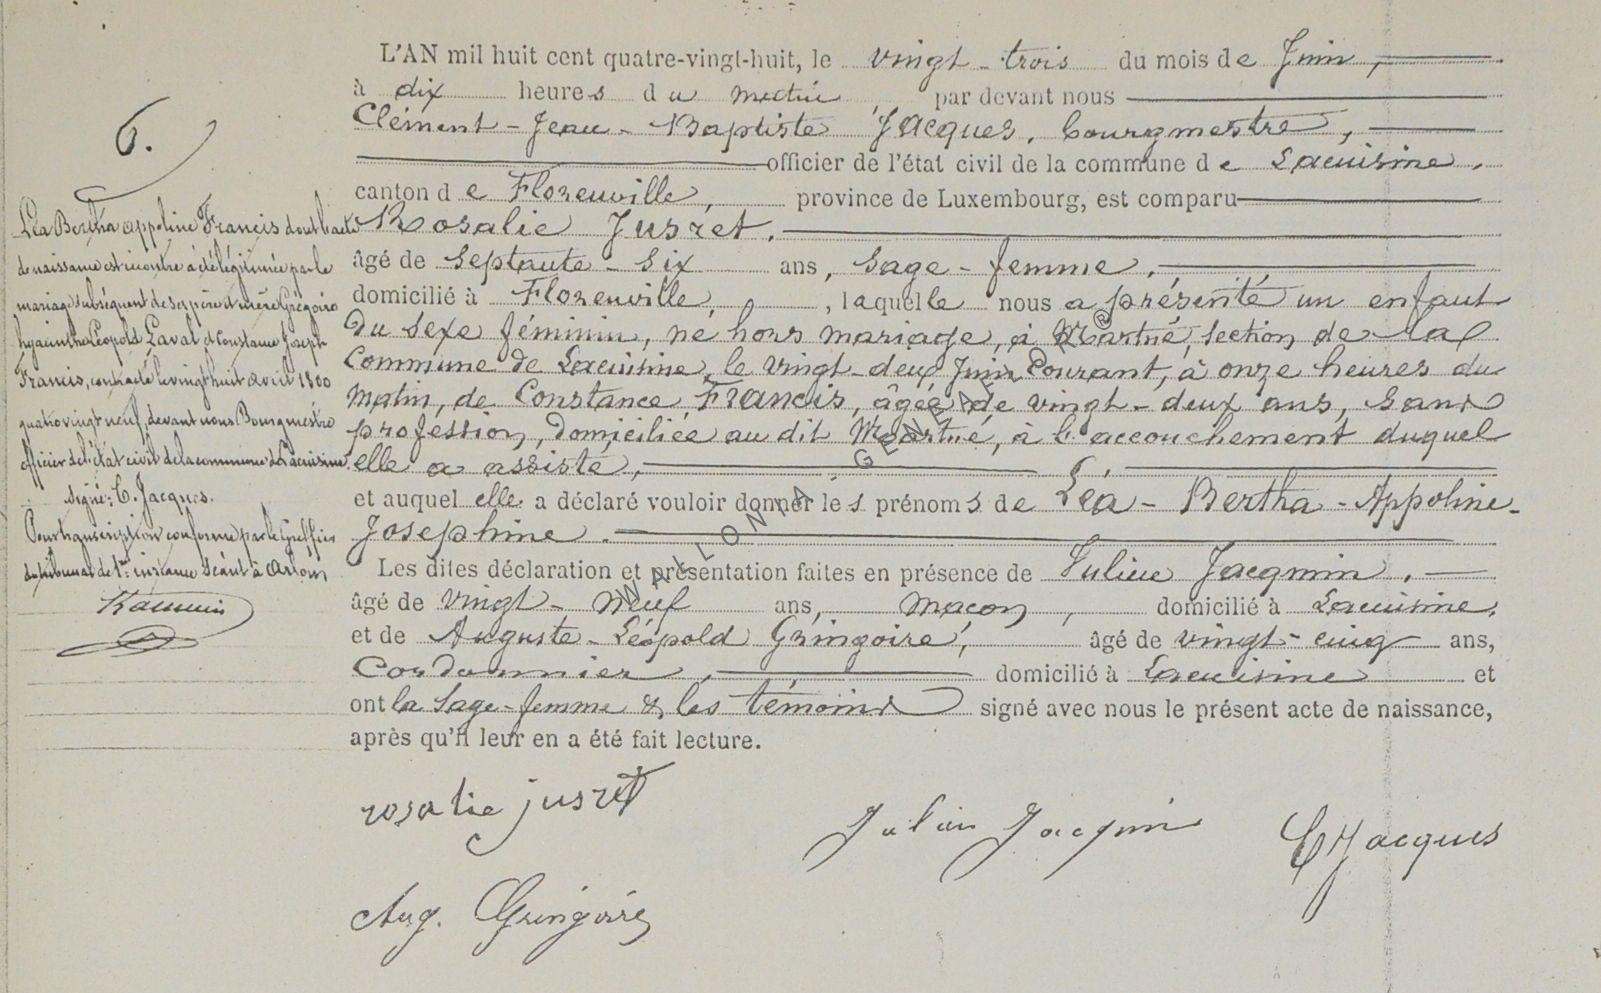 6.
Léa Bertha Appoline Francis dont l'acte
de naissance est ci contre a été légitimée par le
mariage subséquent de ses père et mère Grégoire
hyacinthe Léopold Laval et Constance Joseph
Francis, contracté le vingt huit avril 1800
quatre vingt neuf, devant nous Bourgmestre
officier de l'état civil de la commune de Lacuisine
signé: C. Jacques.
Pour transcription conforme par le Greffier
du tribunal de 1re instance séant à Arlon
L'AN mil huit cent quatre-vingt-huit, le vingt-trois du mois de Juin,
à dix heures du matin, par devant nous
Clément-Jean-Baptiste Jacques, bourgmestre,
officier de l'état civil de la commune de Lacuisine,
canton de Florenville, province de Luxembourg, est comparu
Rosalie Jusret,
âgé de septante-six ans, sage-femme,
domicilié à Florenville, laquelle nous a présenté un enfant
du sexe féminin, né hors mariage, à Martué, section de la
commune de Lacuisine, le vingt-deux Juin courant, à onze heures du
matin, de Constance Francis, âgée de vingt-deux ans, sans
profession, domiciliée au dit Martué, à l'accouchement duquel
elle a assisté,
et auquel elle a déclaré vouloir donner les prénoms de Léa-Bertha-Appoline-
Josephine.
Les dites déclaration et présentation faites en présence de Julien Jacqmin,
âgé de vingt-neuf ans, maçon, domicilié à Lacuisine,
et de Auguste-Léopold Gringoire, âgé de vingt-cinq ans,
Cordonnier, domicilié à Lacuisine et
ont la sage-femme & les témoins signé avec nous le présent acte de naissance,
après qu'il leur en a été fait lecture.
rosalie jusret
Julien Jacqmin
CJJacques
Aug. Gringoire
WALLONIA GENEA